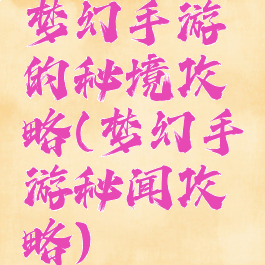 梦幻手游
的秘境攻
略(梦幻手
游秘闻攻
略)